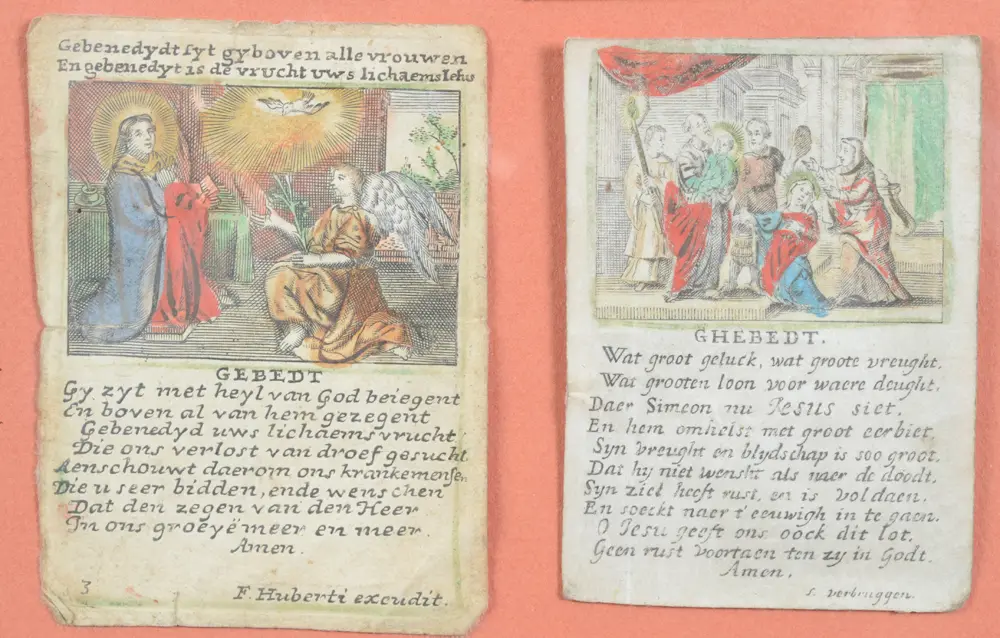 Gebenedydt syt gy boven alle vrouwen
En gebenedyt is de vrucht uws lichaems Iesus
GEBEDT
Gy zyt met heyl van God beiegent
En boven al van hem gezegent
Gebenedyd uws lichaems vrucht
Die ons verlost van droef gesucht
Aenschouwt daerom ons krankemensen
Die u seer bidden, ende wenschen
Dat den zegen van den Heer
In ons groeyē meer en meer.
Amen.
3
F. Huberti excudit.
GHEBEDT.
Wat groot geluck, wat groote vreught.
Wat grooten loon voor waere deught.
Daer Simeon nu JESUS siet.
En hem omhelst met groot eerbiet.
Syn vreught en blydschap is soo groot.
Dat hy niet wenst als naer de doodt.
Syn ziel heeft rust, en is voldaen.
En soeckt naer t'eeuwigh in te gaen.
O Jesu geeft ons oock dit lot.
Geen rust voortaen ten zy in Godt.
Amen.
s. verbruggen.